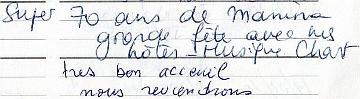 Super 70 ans de Manina
grande fête avec nos
hôtes - Musique Chant
tres bon acceuil
nous reviendrons